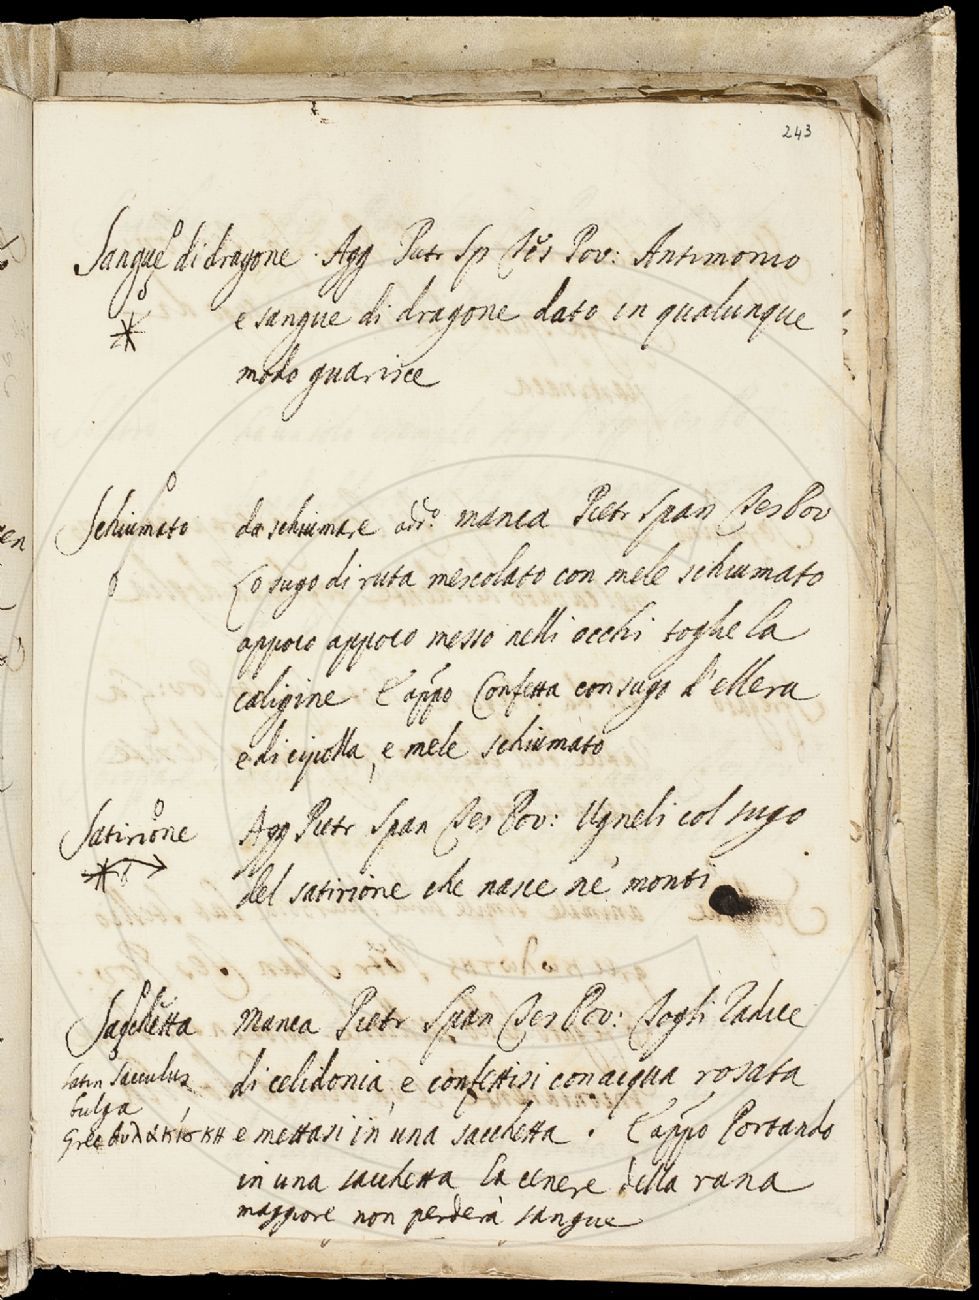 243
Sangue di dragone. Agg Pietr Sp Tes Pov: Antimonio
e sangue di dragone dato in qualunque
modo guarisce
Schiumato da schiumare add.o manca Pietr Span Tes Pov
Lo sugo di ruta mescolato con mele schiumato
appoco appoco messo nelli occhi toglie la
caligine E appo Confetta con sugo d'ellera
e di cipolla, e mele schiumato
Satirione Agg Pietr Span Tes Pov: Ugneli col sugo
del satirione che nasce ne' monti
Sacchetta Manca Pietr Span Tes Pov: Togli Radice
latin Sacculus di celidonia, e confettisi con acqua rosata
bulga
Grec θυλάκισκη e mettasi in una sacchetta. E appo Portando
in una sacchetta la cenere della rana
maggiore non perderà sangue